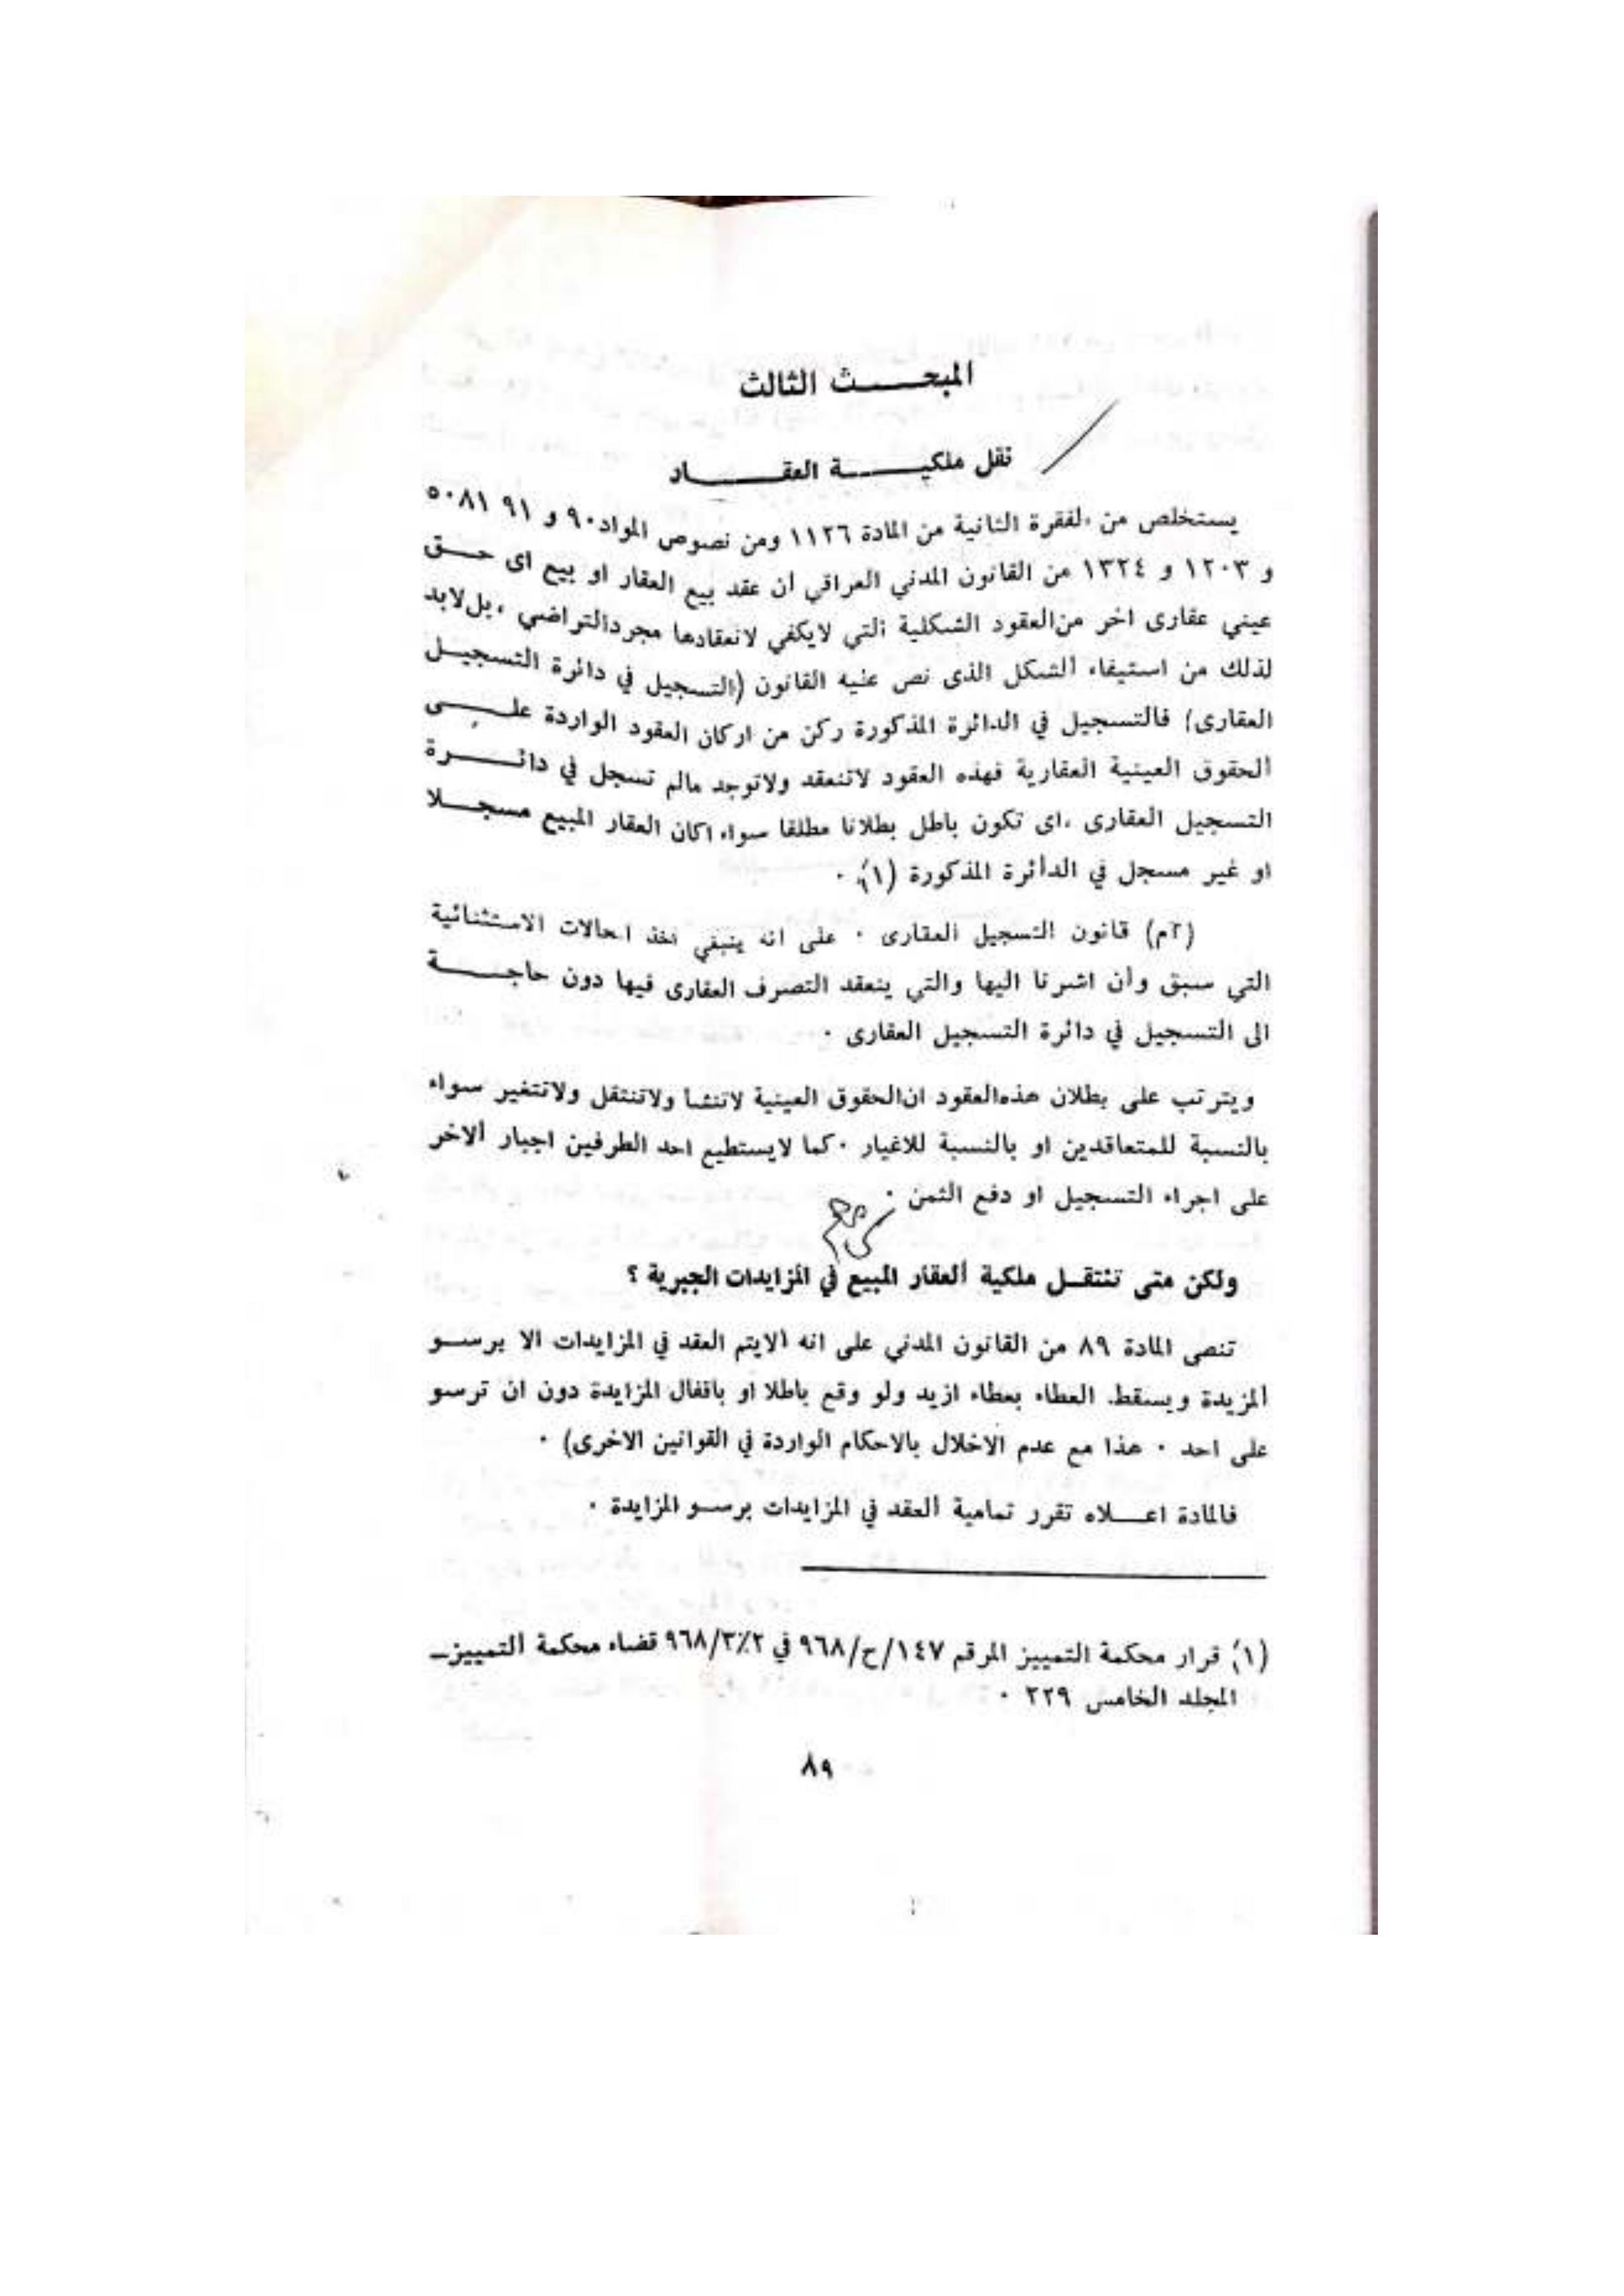 المبحـــــث الثالث
نقل ملكيـــــــة العقـــــــاد
يستخلص من الفقرة الثانية من المادة ١١٢٦ ومن نصوص المواد ٩٠ و ٩١ ٥٠٨١
و ١٢٠٣ و ١٣٢٤ من القانون المدني العراقي أن عقد بيع العقار او بيع اى حـــق
عيني عقارى اخر من العقود الشكلية التي لايكفي لانعقادها مجرد التراضي ، بل لابد
لذلك من استيفاء الشكل الذى نص عليه القانون (التسجيل في دائرة التسجيـــل
العقارى) فالتسجيل في الدائرة المذكورة ركن من اركان العقود الواردة علـــى
الحقوق العينية العقارية فهذه العقود لاتنعقد ولاتوجد مالم تسجل في دائـــــرة
التسجيل العقارى ،اى تكون باطل بطلانا مطلقا سواء اكان العقار المبيع مسجـــلا
او غير مسجل في الدأئرة المذكورة (١) ٠
(٣م) قانون التسجيل العقارى ٠ على انه ينبغي الحالات الاستثنائية
التي سبق وأن اشرنا اليها والتي ينعقد التصرف العقارى فيها دون حاجـــــة
الى التسجيل في دائرة التسجيل العقارى ٠
ويترتب على بطلان هذه العقود ان الحقوق العينية لاتنشأ ولاتنتقل ولاتتغير سواء
بالنسبة للمتعاقدين او بالنسبة للاغيار ٠ كما لايستطيع احد الطرفين اجبار ألاخر
على اجراء التسجيل او دفع الثمن ٠
ولكن متى تنتقـــل ملكية ألعقار المبيع في المزايدات الجبرية ؟
تنص المادة ٨٩ من القانون المدني على انه (لايتم العقد في المزايدات الا برســـو
ألمزيدة ويسقط العطاء بعطاء ازيد ولو وقع باطلا او باقفال المزايدة دون ان ترسو
على احد ٠ هذا مع عدم الاخلال بالاحكام الواردة في القوانين الاخرى) ٠
فالمادة اعـــلاه تقرر تمامية ألعقد في المزايدات برســو المزايدة ٠
(١) قرار محكمة التمييز المرقم ١٤٧/ح/٩٦٨ في ٩٦٨/٣/٢ قضاء محكمة التمييزـ
المجلد الخامس ٢٢٩ ٠
٨٩